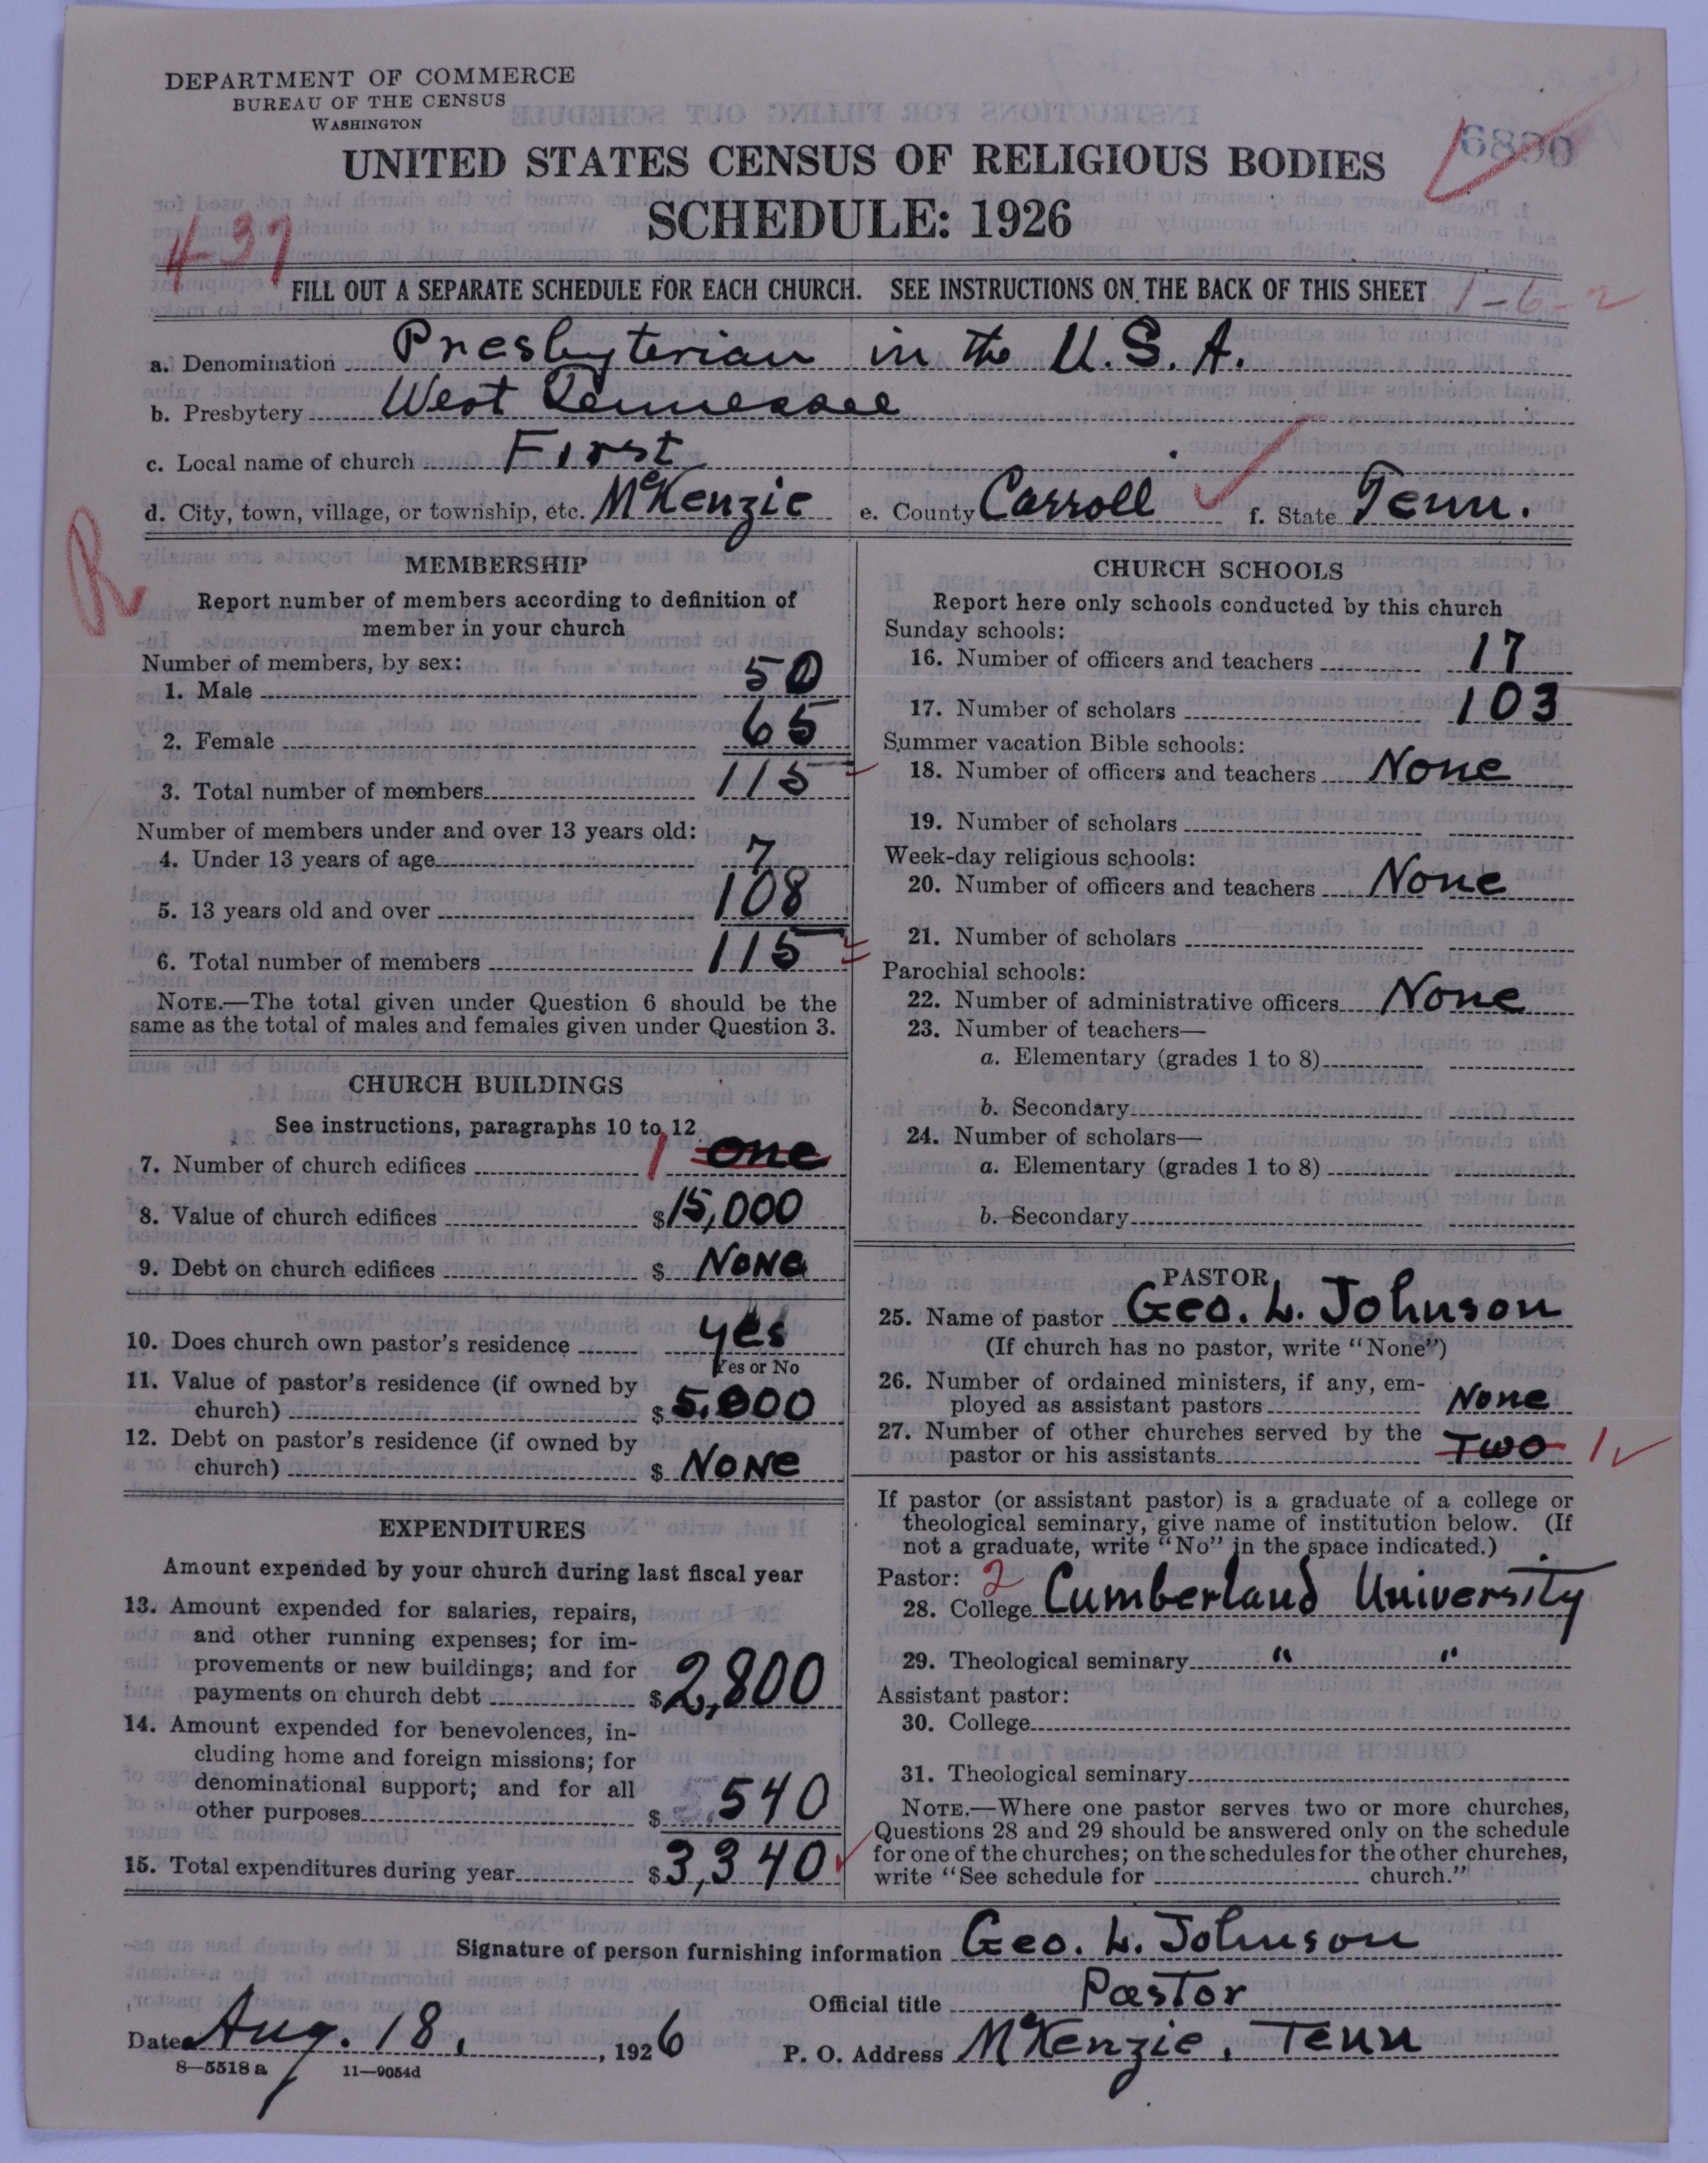 DEPARTMENT OF COMMERCE
BUREAU OF THE CENSUS
WASHINGTON
UNITED STATES CENSUS OF RELIGIOUS BODIES
SCHEDULE: 1926
437
FILL OUT A SEPARATE SCHEDULE FOR EACH CHURCH. SEE INSTRUCTIONS ON THE BACK OF THIS SHEET
1-6-2
a. Denomination Presbyterian in the U.S.A.
b. Presbytery West Tennessee
c. Local name of church First
d. City, town, village, or township, etc. McKenzie e. County Carroll f. State Tenn.
R
MEMBERSHIP
Report number of members according to definition of
member in your church
Number of members, by sex:
1. Male 50
2. Female 65
3. Total number of members 115
Number of members under and over 13 years old:
4. Under 13 years of age 7
5. 13 years old and over 108
6. Total number of members 115
NOTE.—The total given under Question 6 should be the
same as the total of males and females given under Question 3.
CHURCH BUILDINGS
See instructions, paragraphs 10 to 12
7. Number of church edifices 1 one
8. Value of church edifices $15,000
9. Debt on church edifices $ None
10. Does church own pastor's residence yes
Yes or No
11. Value of pastor's residence (if owned by
church) $5,000
12. Debt on pastor's residence (if owned by
church) $ None
EXPENDITURES
Amount expended by your church during last fiscal year
13. Amount expended for salaries, repairs,
and other running expenses; for im-
provements or new buildings; and for
payments on church debt $2,800
14. Amount expended for benevolences, in-
cluding home and foreign missions; for
denominational support; and for all
other purposes $ 540
15. Total expenditures during year $3,340
CHURCH SCHOOLS
Report here only schools conducted by this church
Sunday schools:
16. Number of officers and teachers 17
17. Number of scholars 103
Summer vacation Bible schools:
18. Number of officers and teachers None
19. Number of scholars
Week-day religious schools:
20. Number of officers and teachers None
21. Number of scholars
Parochial schools:
22. Number of administrative officers None
23. Number of teachers—
a. Elementary (grades 1 to 8)
b. Secondary
24. Number of scholars—
a. Elementary (grades 1 to 8)
b. Secondary
PASTOR
25. Name of pastor Geo. L. Johnson
(If church has no pastor, write "None")
26. Number of ordained ministers, if any, em-
ployed as assistant pastors None
27. Number of other churches served by the
pastor or his assistants Two 1
If pastor (or assistant pastor) is a graduate of a college or
theological seminary, give name of institution below. (If
not a graduate, write "No" in the space indicated.)
Pastor: 2
28. College Cumberland University
29. Theological seminary " "
Assistant pastor:
30. College
31. Theological seminary
NOTE.—Where one pastor serves two or more churches,
Questions 28 and 29 should be answered only on the schedule
for one of the churches; on the schedules for the other churches,
write "See schedule for church."
Signature of person furnishing information Geo. L. Johnson
Official title Pastor
Date Aug. 18, , 1926 P. O. Address McKenzie, Tenn
8—5518 a 11—9054d